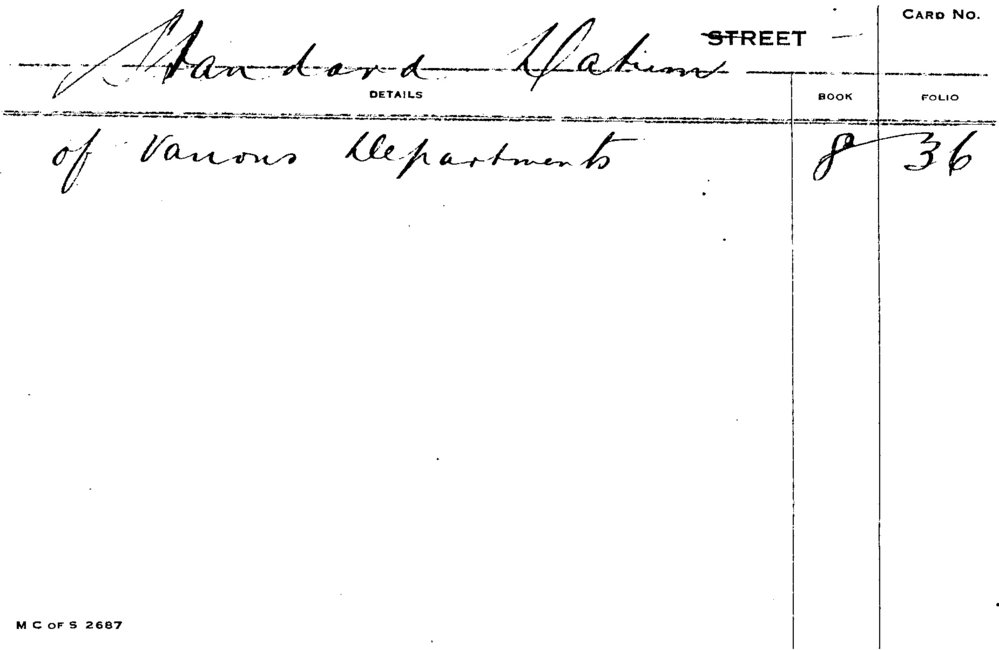 CARD NO.
Standard Datum STREET
DETAILS BOOK FOLIO
of Various Departments 8 36
M C OF S 2687